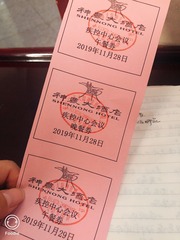 神农大酒店
SHENNONG HOTEL
疾控中心会议
午餐券
2019年11月28日
神农大酒店
SHENNONG HOTEL
疾控中心会议
晚餐券
2019年11月28日
神农大酒店
SHENNONG HOTEL
疾控中心会议
午餐券
2019年11月29日